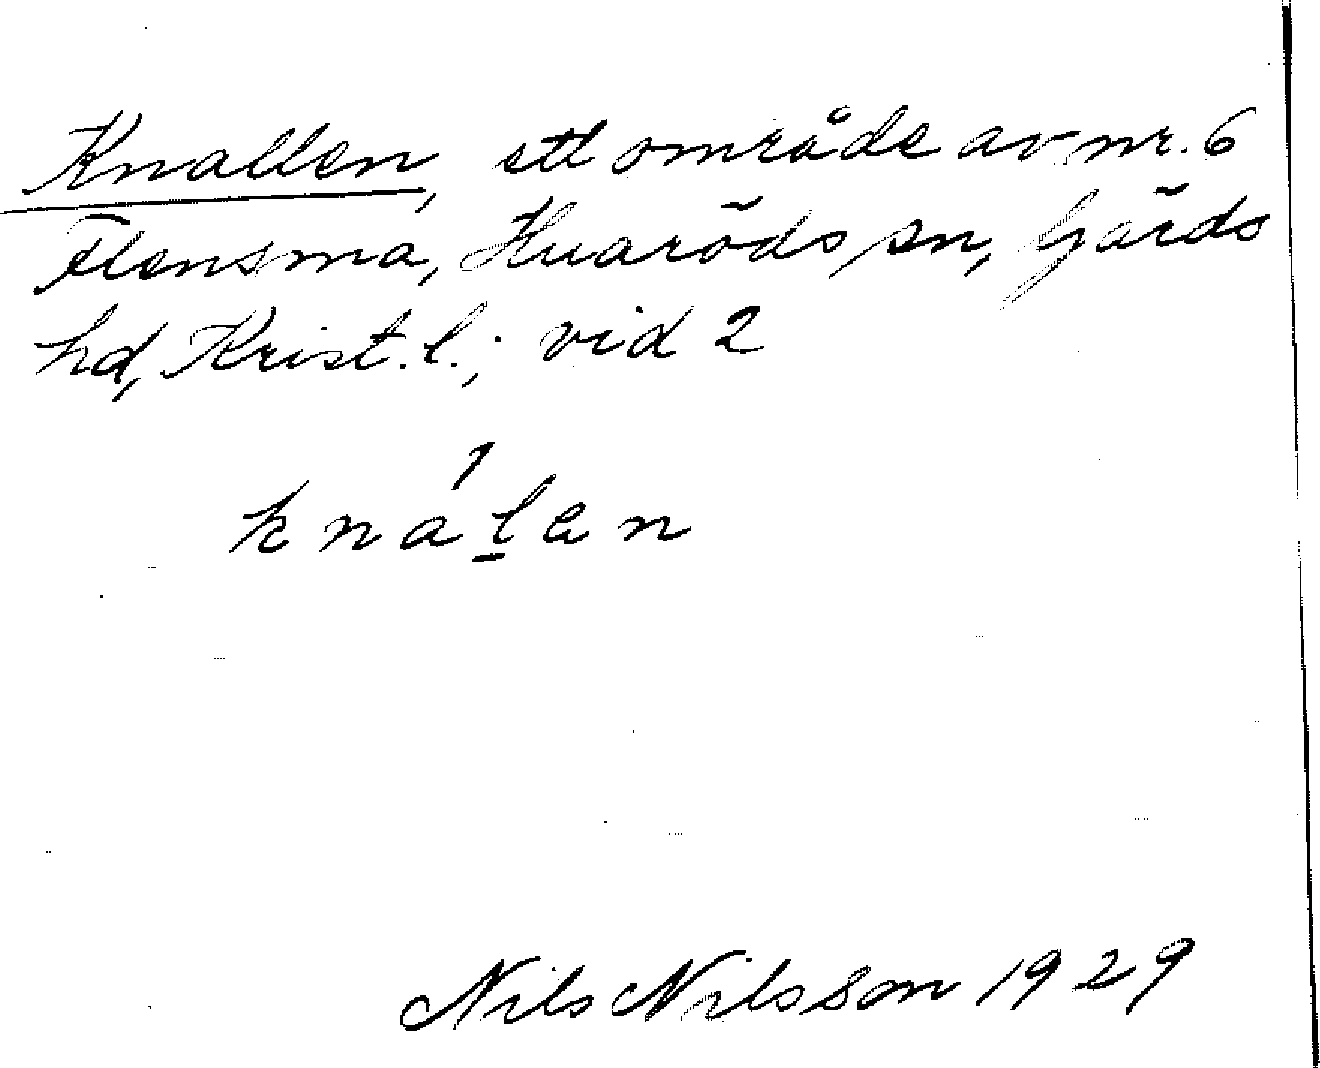 Knallen, ett område av nr. 6
Flensma, Huaröds sn, Gärds
hd, Krist. l.; vid 2
knálen
Nils Nilsson 1929